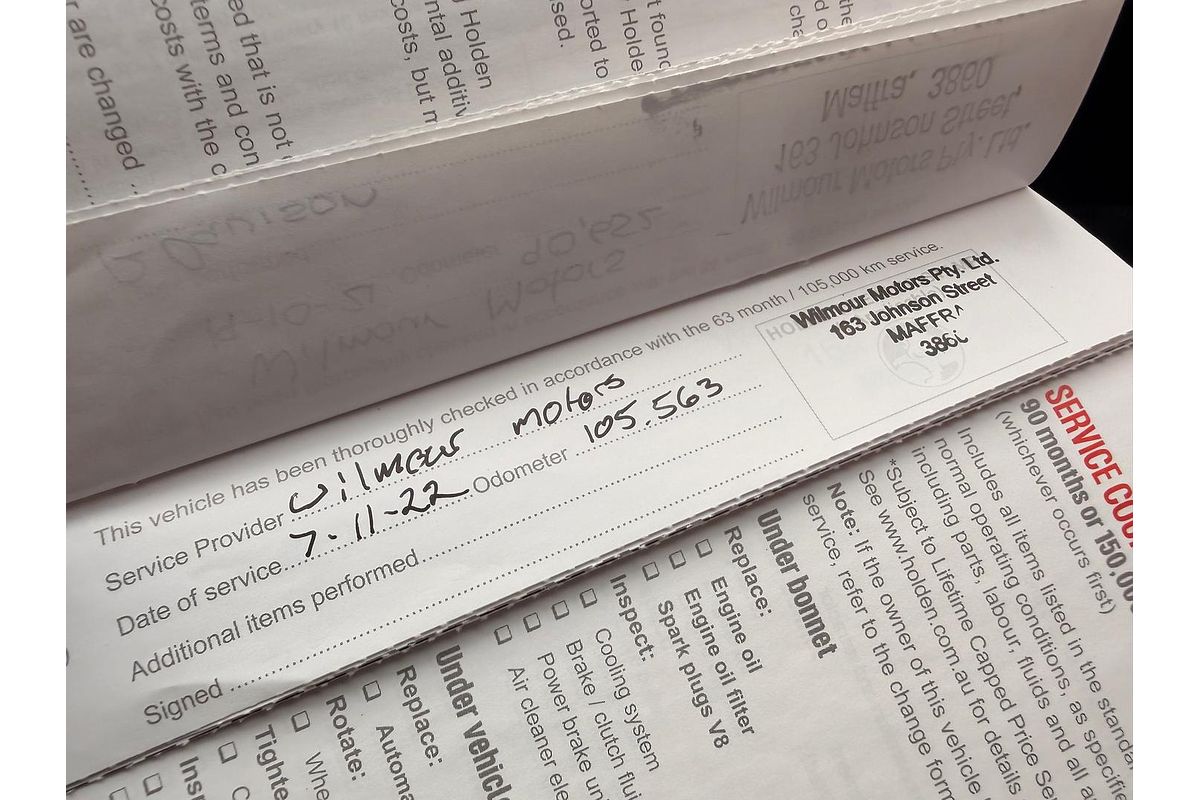 r are changed ..
ed that is not
terms and con
costs with the c
Holden
ntal additiv
costs, but m
orted to
sed.
t found
Holde
the
d o
cha
Wilmour Motors Pty. Ltd.
163 Johnson Street,
Maffra, 3860
Wilmour Motors
Odometer 90,652
This vehicle has been thoroughly checked in accordance with the 63 month / 105,000 km service.
Service Provider Wilmour motors
Date of service 7-11-22 Odometer 105.563
Additional items performed
Signed
Wilmour Motors Pty. Ltd.
163 Johnson Street
MAFFRA
386
SERVICE COU
90 months or 150,00
(whichever occurs first)
Includes all items listed in the standar
normal operating conditions, as specifie
including parts, labour, fluids and all a
*Subject to Lifetime Capped Price Se
See www.holden.com.au for details
Note: If the owner of this vehicle
service, refer to the change form
Under bonnet
Replace:
Engine oil
Engine oil filter
Spark plugs V8
Inspect:
Cooling system
Brake / clutch flui
Power brake un
Air cleaner ele
Under vehicl
Replace:
Automa
Rotate:
Whe
Tighte
C
Insp